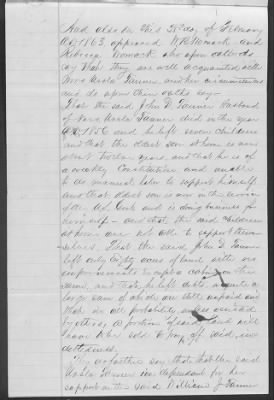 And also on this 5th day of February
AD 1863 appeared W R Womack and
Rebecca Womack who upon oath do
say that they are well acquainted with
Mrs Uzela Tanner and her circumstances
and do upon their oaths say
That the said John D. Tanner husband
of Mrs Uzela Tanner died in the year
AD 1856 and he left seven children
and that the oldest son at home is now
about Twelve years, and that he is of
a weakly Constitution and unable
to do manual labor to support himself
and that oldest son is now in the
of the and is doing business for
himself - and that the said children
at home are not able to support them
selves. That the said John D Tanner
left only Eighty acres of land with no
improvements except a cabin on the
same, and that he left debts, quite a
large sum of which are still unpaid and
that in all probability
by others, a portion of said land will
have to be sold to pay off said in
debtedness.
They further say that the said
Uzela Tanner is dependant for her
support on the said William J Tanner